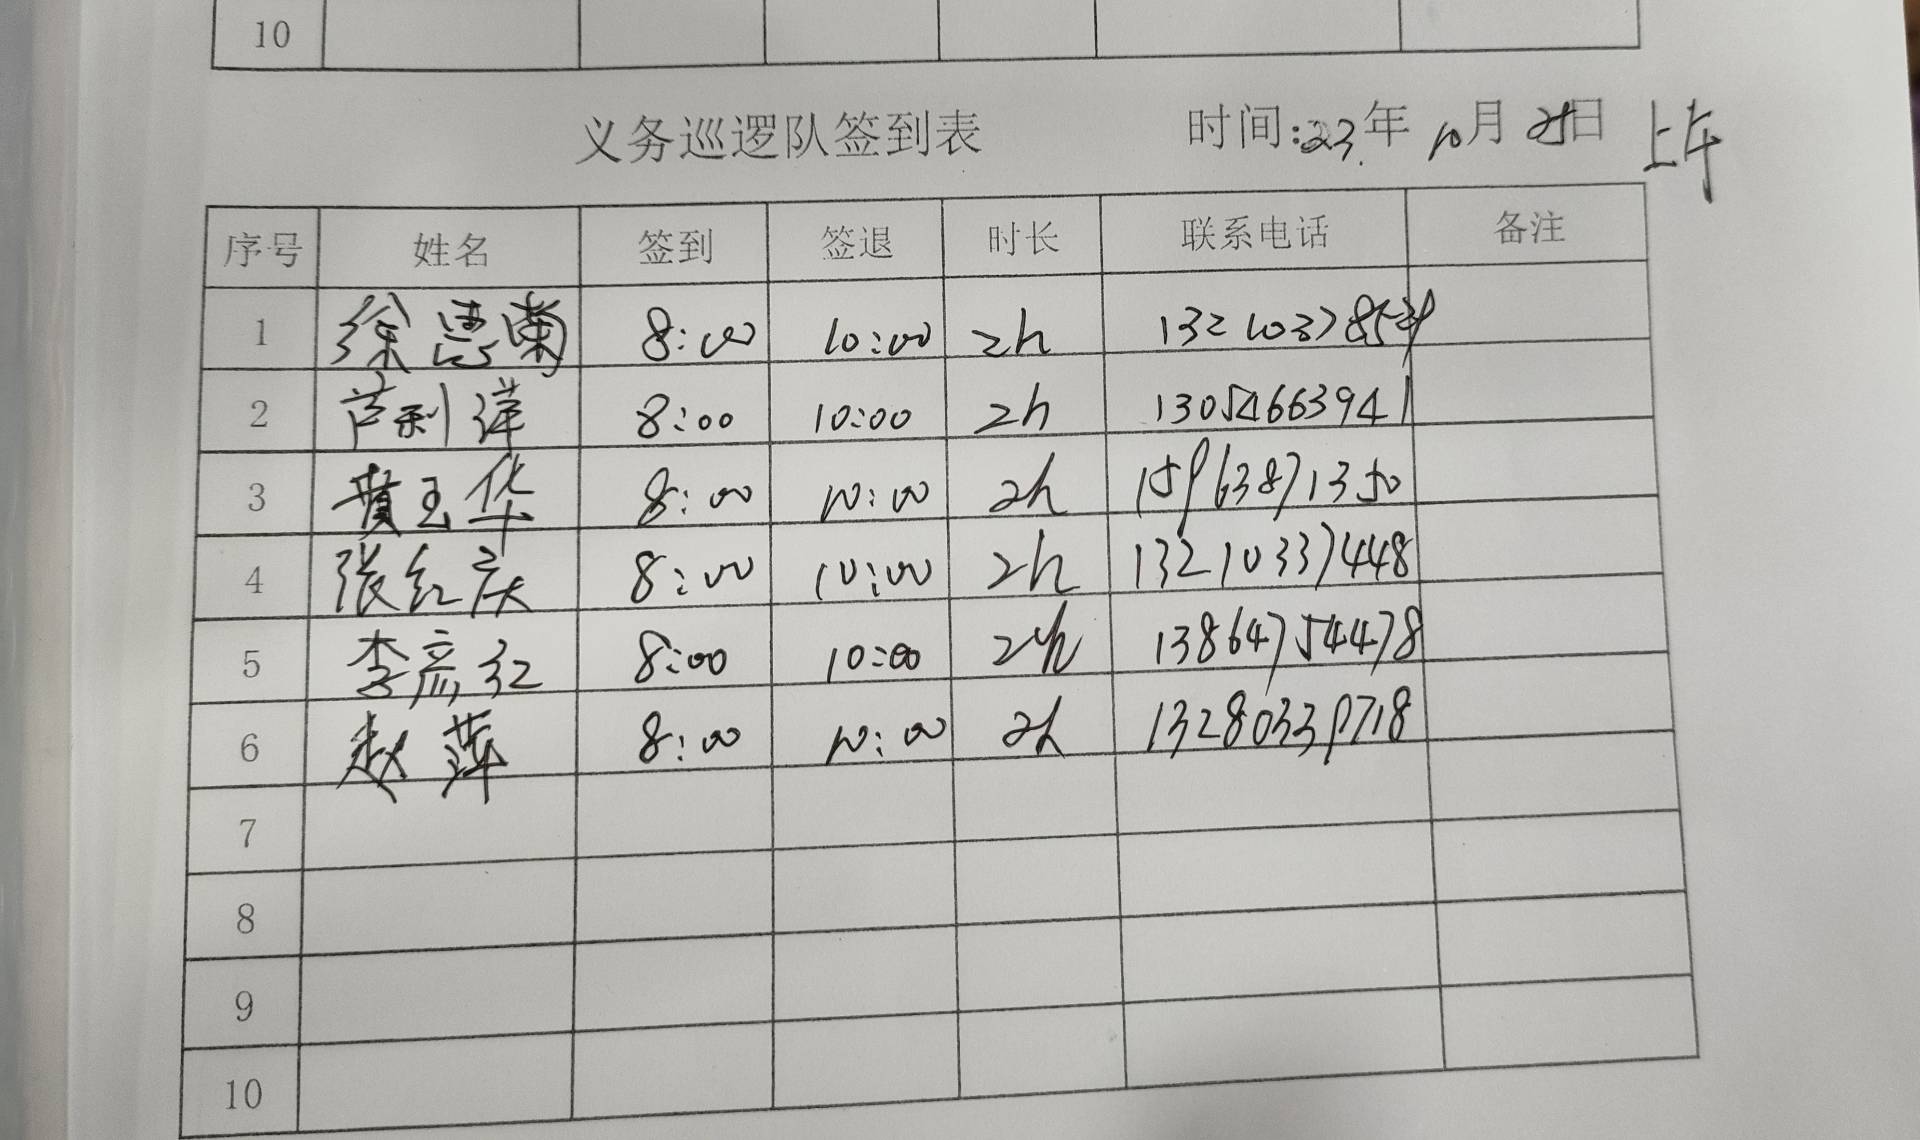 10
义务巡逻队签到表 时间:23年10月25日 上午
序号 姓名 签到 签退 时长 联系电话 备注
1 徐惠兰 8:00 10:00 2h
2 芦利萍 8:00 10:00 2h 13054663941
3 黄玉华 8:00 10:00 2h 15963871350
4 张红庆 8:00 10:00 2h 13210337448
5 李彦红 8:00 10:00 2h 13864754478
6 赵萍 8:00 10:00 2h 13280339718
7
8
9
10